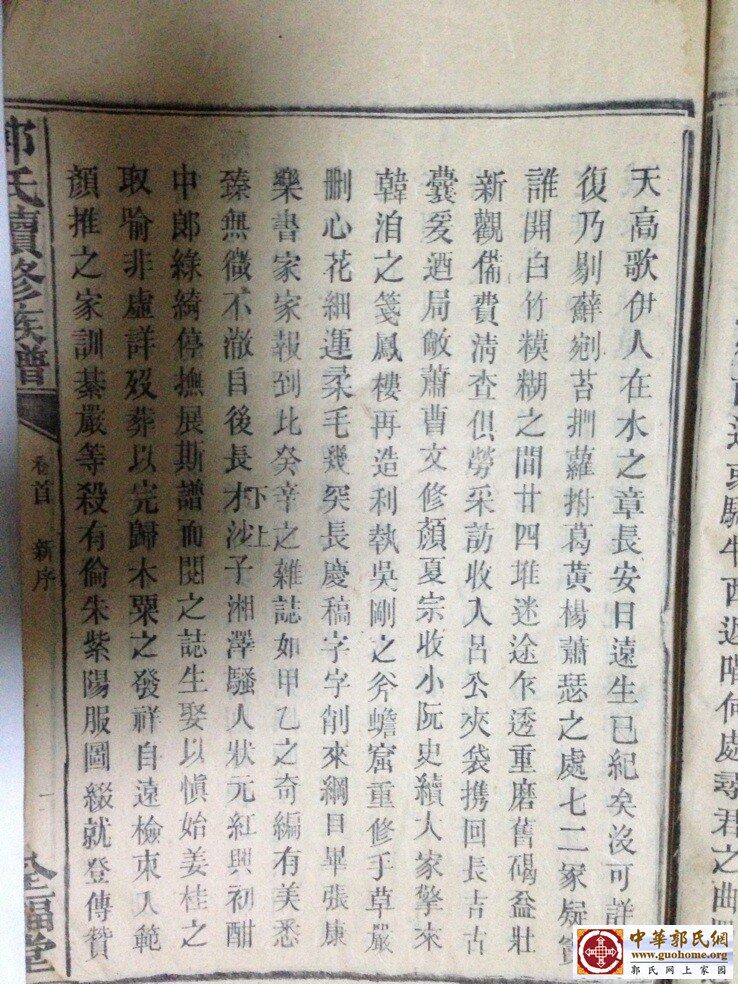 天高歌伊人在水之章長安日遠生已紀矣沒可詳
復乃剔蘚剜苔捫蘿拊葛黃楊蕭瑟之處七二冢疑實
誰開白竹糢糊之間廿四堆迷途乍透重磨舊碣益壯
新觀備費淸查俱勞采訪收入呂公夾袋攜回長吉古
囊爰酒局敵蕭曹文修顏夏宗收小阮史續大家擎來
韓洎之箋鳳樓再造利執吳剛之斧蟾窟重修手草嚴
刪心花細運柔毛幾突長慶稿字字削來綱目畢張康
樂書家家報到比癸辛之雜誌如甲乙之奇編有美悉
臻無微不澈自後長才沙子湘澤騷人狀元紅興初酣
下上
中郎綠綺停撫展斯譜而閱之誌生娶以愼始姜桂之
取喻非虛詳歿葬以完歸木粟之發祥自遠檢束入範
顏推之家訓綦嚴等殺有倫朱紫陽服圖綴就登傳贊
郭氏續修族譜
卷首 新序
全福堂
西過
何處尋君之曲
中華郭氏網
www.guohome.org
郭氏网上家园